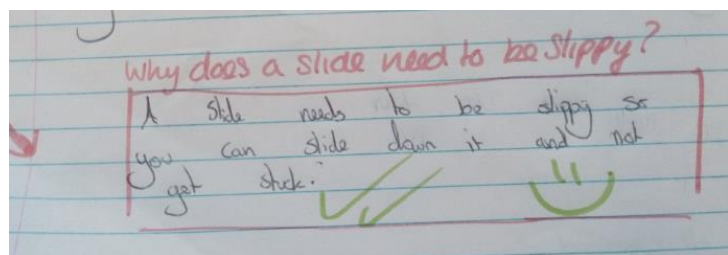 Why does a slide need to be slippy?
A slide needs to be slippy so
you can slide down it and not
get stuck.